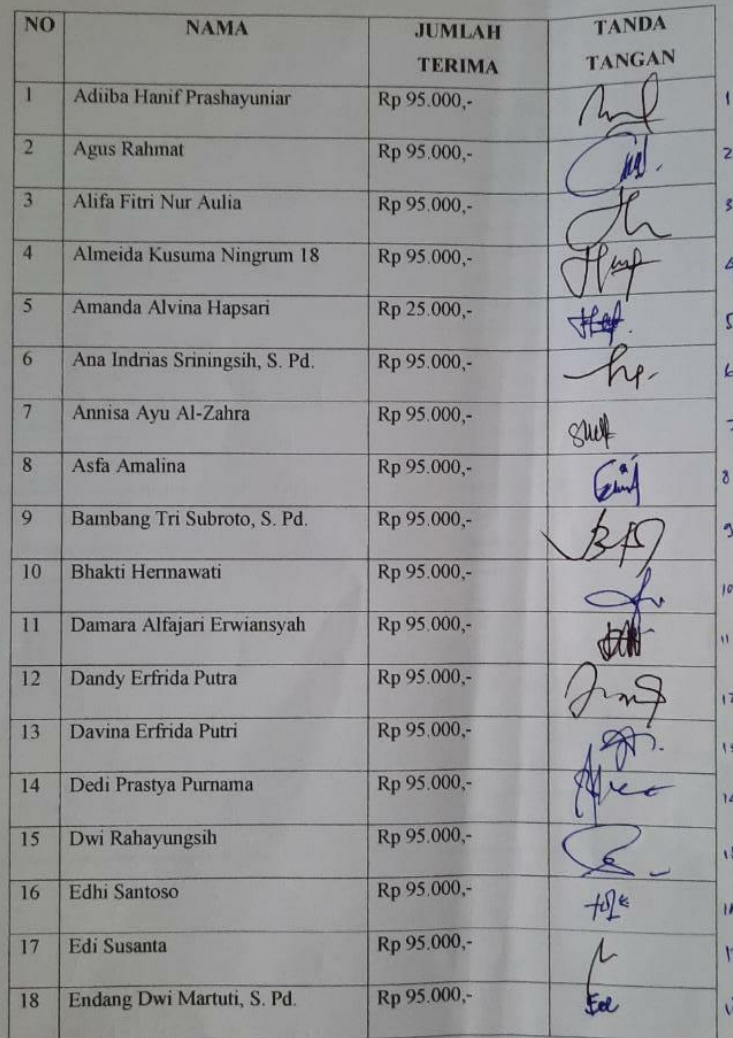 NO NAMA JUMLAH TERIMA TANDA TANGAN
1 Adiiba Hanif Prashayuniar Rp 95.000,- 1
2 Agus Rahmat Rp 95.000,- 2
3 Alifa Fitri Nur Aulia Rp 95.000,- 3
4 Almeida Kusuma Ningrum 18 Rp 95.000,- 4
5 Amanda Alvina Hapsari Rp 25.000,- 5
6 Ana Indrias Sriningsih, S. Pd. Rp 95.000,- 6
7 Annisa Ayu Al-Zahra Rp 95.000,-
8 Asfa Amalina Rp 95.000,- 8
9 Bambang Tri Subroto, S. Pd. Rp 95.000,- 9
10 Bhakti Hermawati Rp 95.000,- 10
11 Damara Alfajari Erwiansyah Rp 95.000,- 11
12 Dandy Erfrida Putra Rp 95.000,- 12
13 Davina Erfrida Putri Rp 95.000,-
14 Dedi Prastya Purnama Rp 95.000,-
15 Dwi Rahayungsih Rp 95.000,-
16 Edhi Santoso Rp 95.000,-
17 Edi Susanta Rp 95.000,-
18 Endang Dwi Martuti, S. Pd. Rp 95.000,-